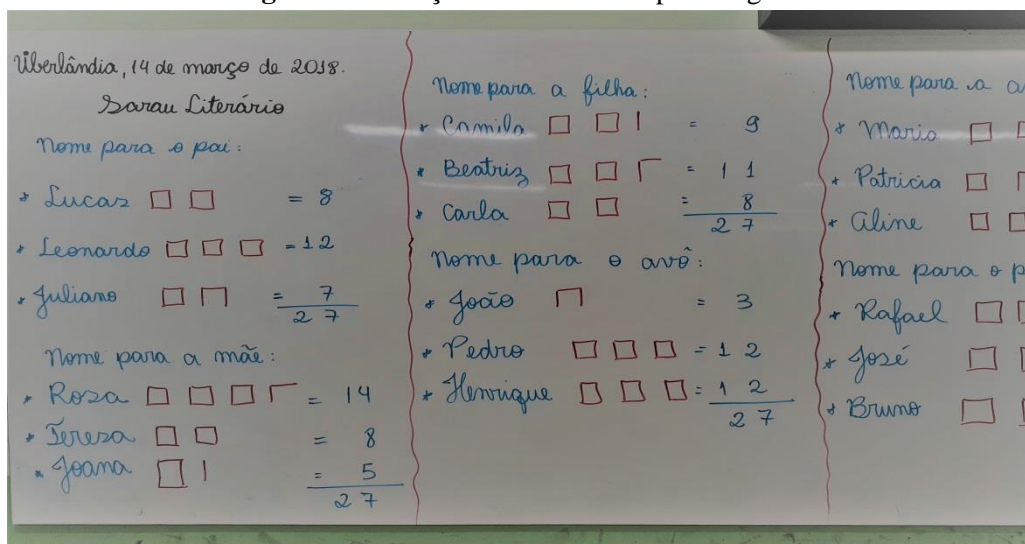 Uberlândia, 14 de março de 2018.
Sarau Literário
Nome para o pai:
* Lucas = 8
* Leonardo = 12
* Juliano = 7
27
Nome para a mãe:
* Rosa = 14
* Tereza = 8
* Joana = 5
27
Nome para a filha:
* Camila = 9
* Beatriz = 11
* Carla = 8
27
Nome para o avô:
* João = 3
* Pedro = 12
* Henrique = 12
27
Nome para a
* Maria
* Patricia
* Aline
Nome para o p
* Rafael
* José
* Bruno